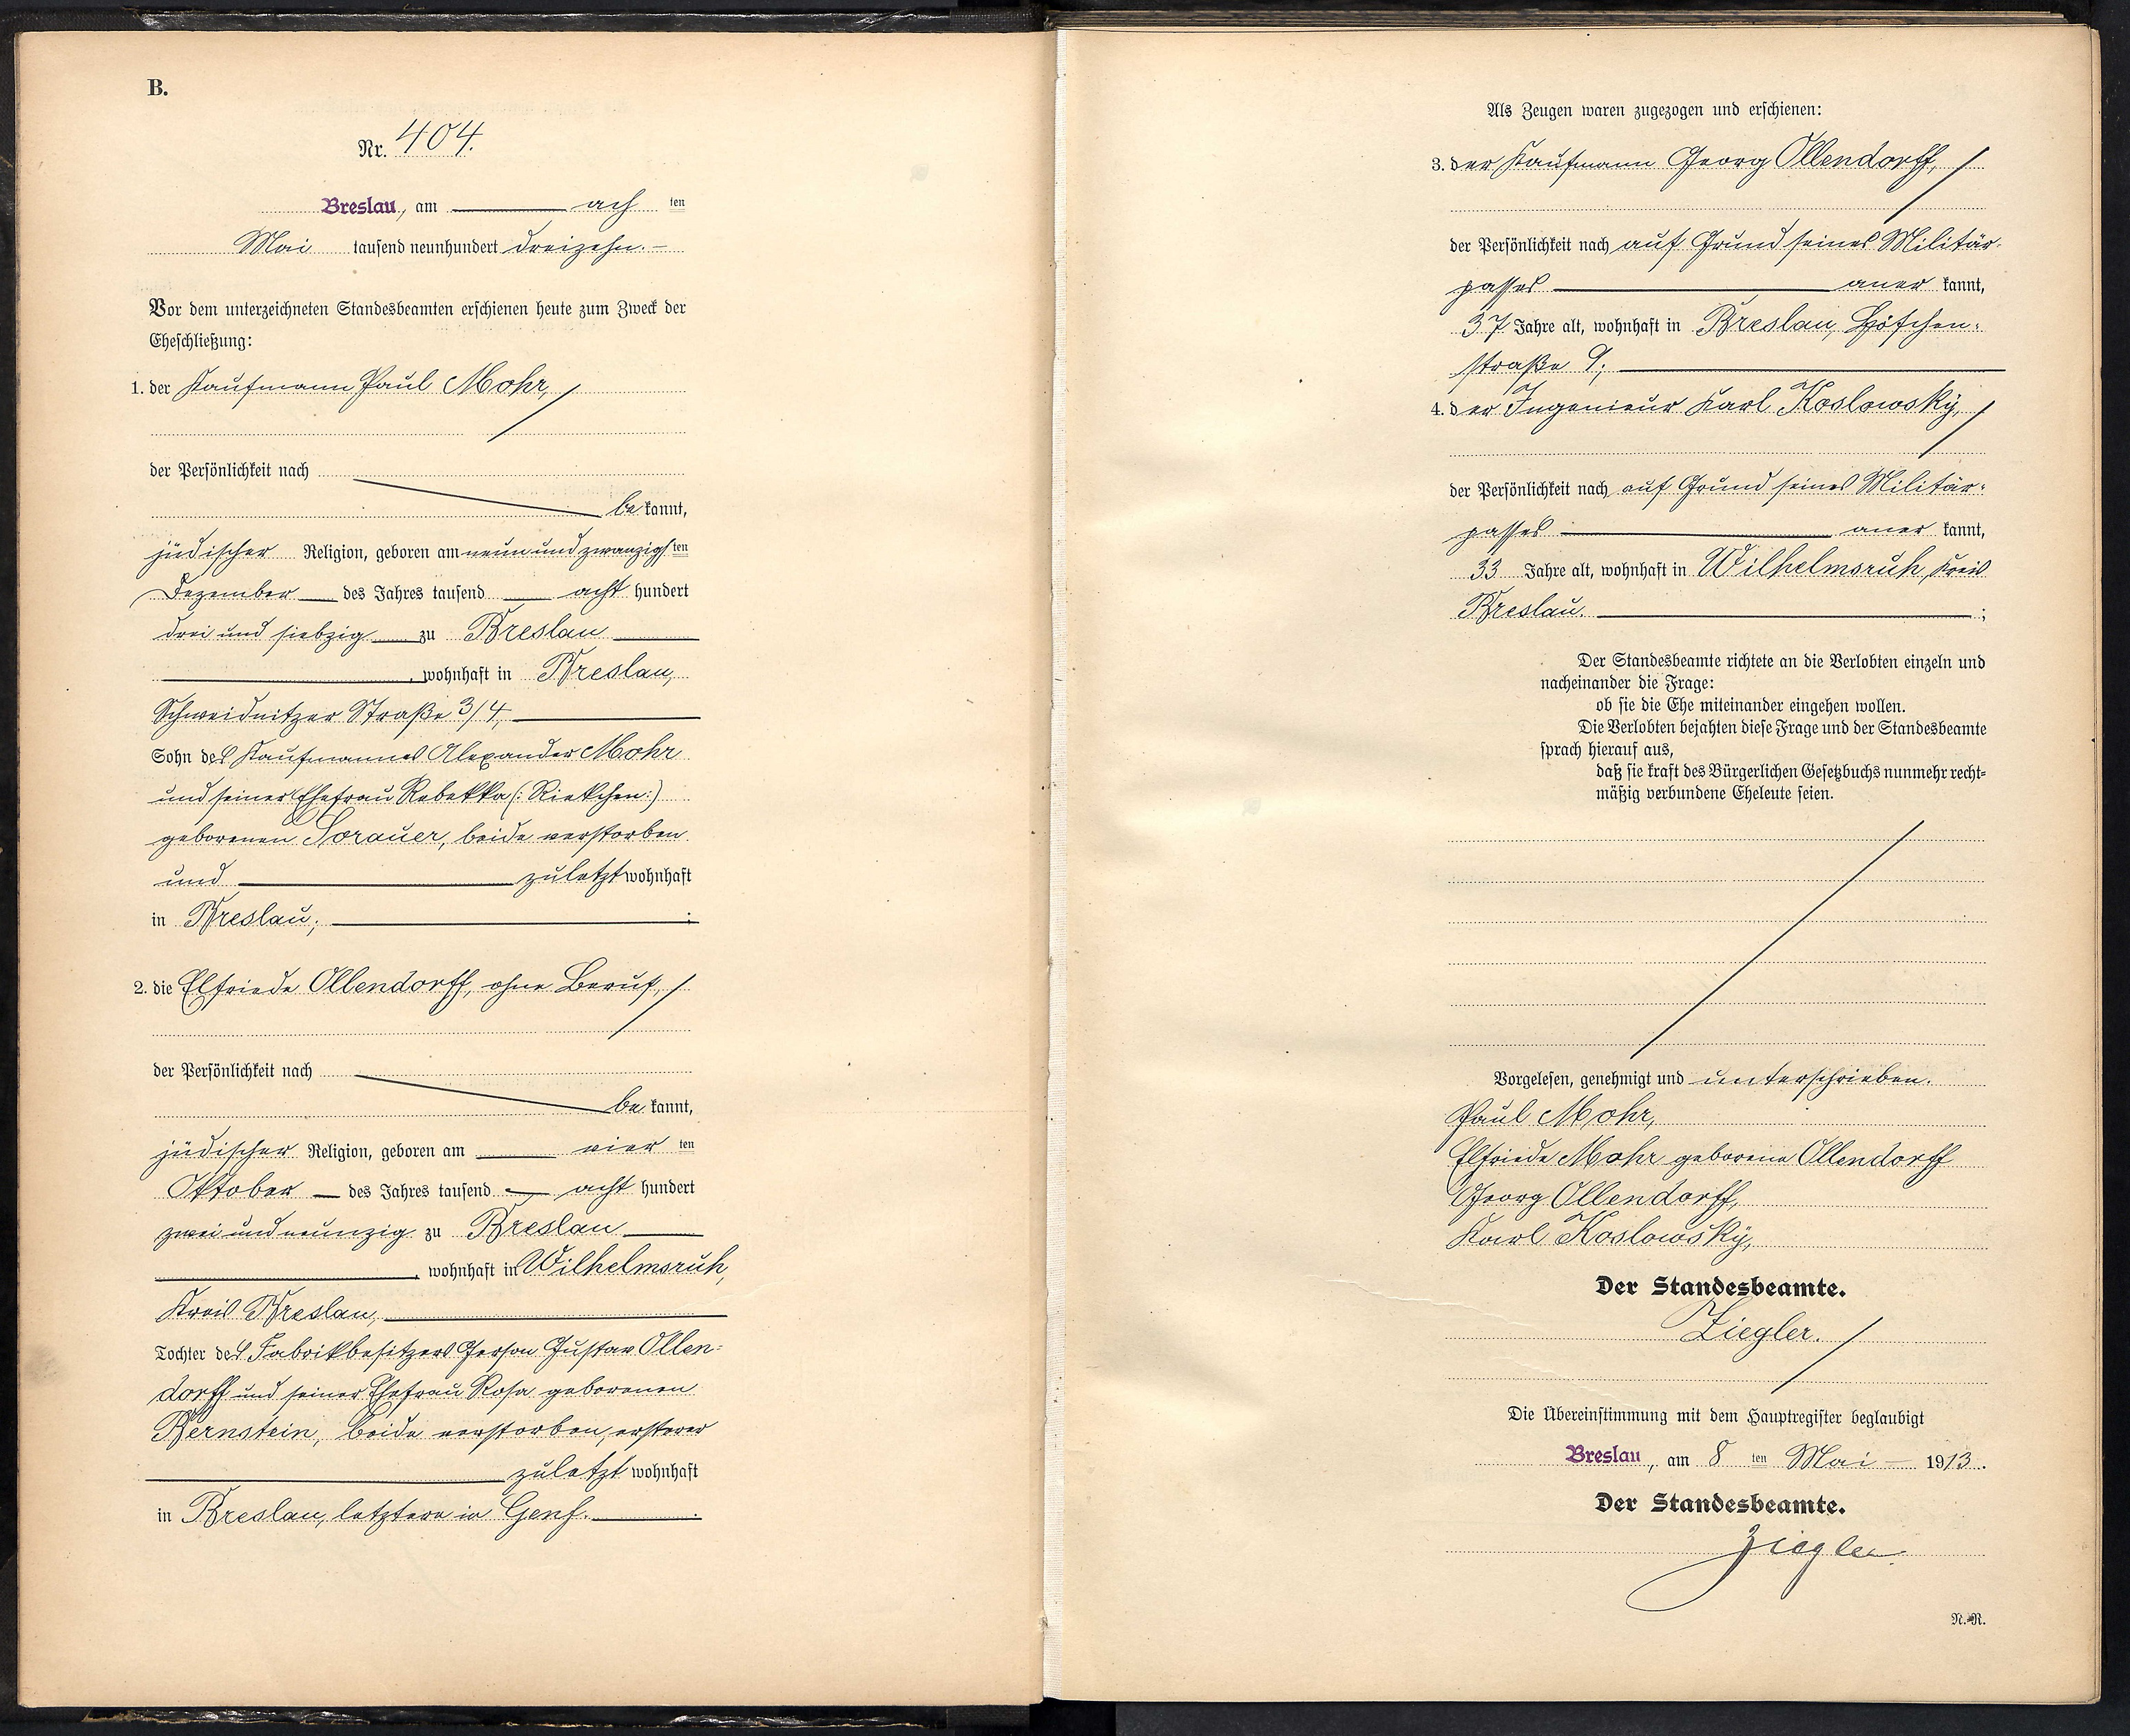 B.
Nr. 404.
Breslau, am ach ten
Mai tausend neunhundert dreizehn. –
Vor dem unterzeichneten Standesbeamten erschienen heute zum Zweck der
Eheschließung:
1. der Kaufmann Paul Mohr,
der Persönlichkeit nach
be kannt,
jüdischer Religion, geboren am neunundzwanzigsten
Dezember des Jahres tausend acht hundert
drei und siebzig zu Breslau
, wohnhaft in Breslau,
Schweidnitzer Straße 3/4,
Sohn des Kaufmannes Alexander Mohr
und seiner Ehefrau Rebekka (: Riekchen :)
geborenen Sorauer, beide verstorben
und zuletzt wohnhaft
in Breslau; ;
2. die Elfriede Ollendorff, ohne Beruf,
der Persönlichkeit nach
be kannt,
jüdischer Religion, geboren am vier ten
Oktober des Jahres tausend acht hundert
zwei und neunzig zu Breslau
, wohnhaft in Wilhelmsruh,
Kreis Breslau,
Tochter des Fabrikbesitzers Gerson Gustav Ollen-
dorff und seiner Ehefrau Rosa geborenen
Bernstein, beide verstorben, ersterer
zuletzt wohnhaft
in Breslau, letztere in Genf. .
Als Zeugen waren zugezogen und erschienen:
3. der Kaufmann Georg Ollendorff,
der Persönlichkeit nach auf Grund seines Militär-
passes aner kannt,
37 Jahre alt, wohnhaft in Breslau, Höfchen-
straße 9;
4. der Ingenieur Karl Koslowsky,
der Persönlichkeit nach auf Grund seines Militär-
passes aner kannt,
33 Jahre alt, wohnhaft in Wilhelmsruh, Kreis
Breslau. ;
Der Standesbeamte richtete an die Verlobten einzeln und
nacheinander die Frage:
ob sie die Ehe miteinander eingehen wollen.
Die Verlobten bejahten diese Frage und der Standesbeamte
sprach hierauf aus,
daß sie kraft des Bürgerlichen Gesetzbuchs nunmehr recht-
mäßig verbundene Eheleute seien.
Vorgelesen, genehmigt und unterschrieben.
Paul Mohr,
Elfriede Mohr geborene Ollendorff
Georg Ollendorff,
Karl Koslowsky,
Der Standesbeamte.
Ziegler.
Die Übereinstimmung mit dem Hauptregister beglaubigt
Breslau, am 8 ten Mai – 1913.
Der Standesbeamte.
Ziegler.
N.-R.